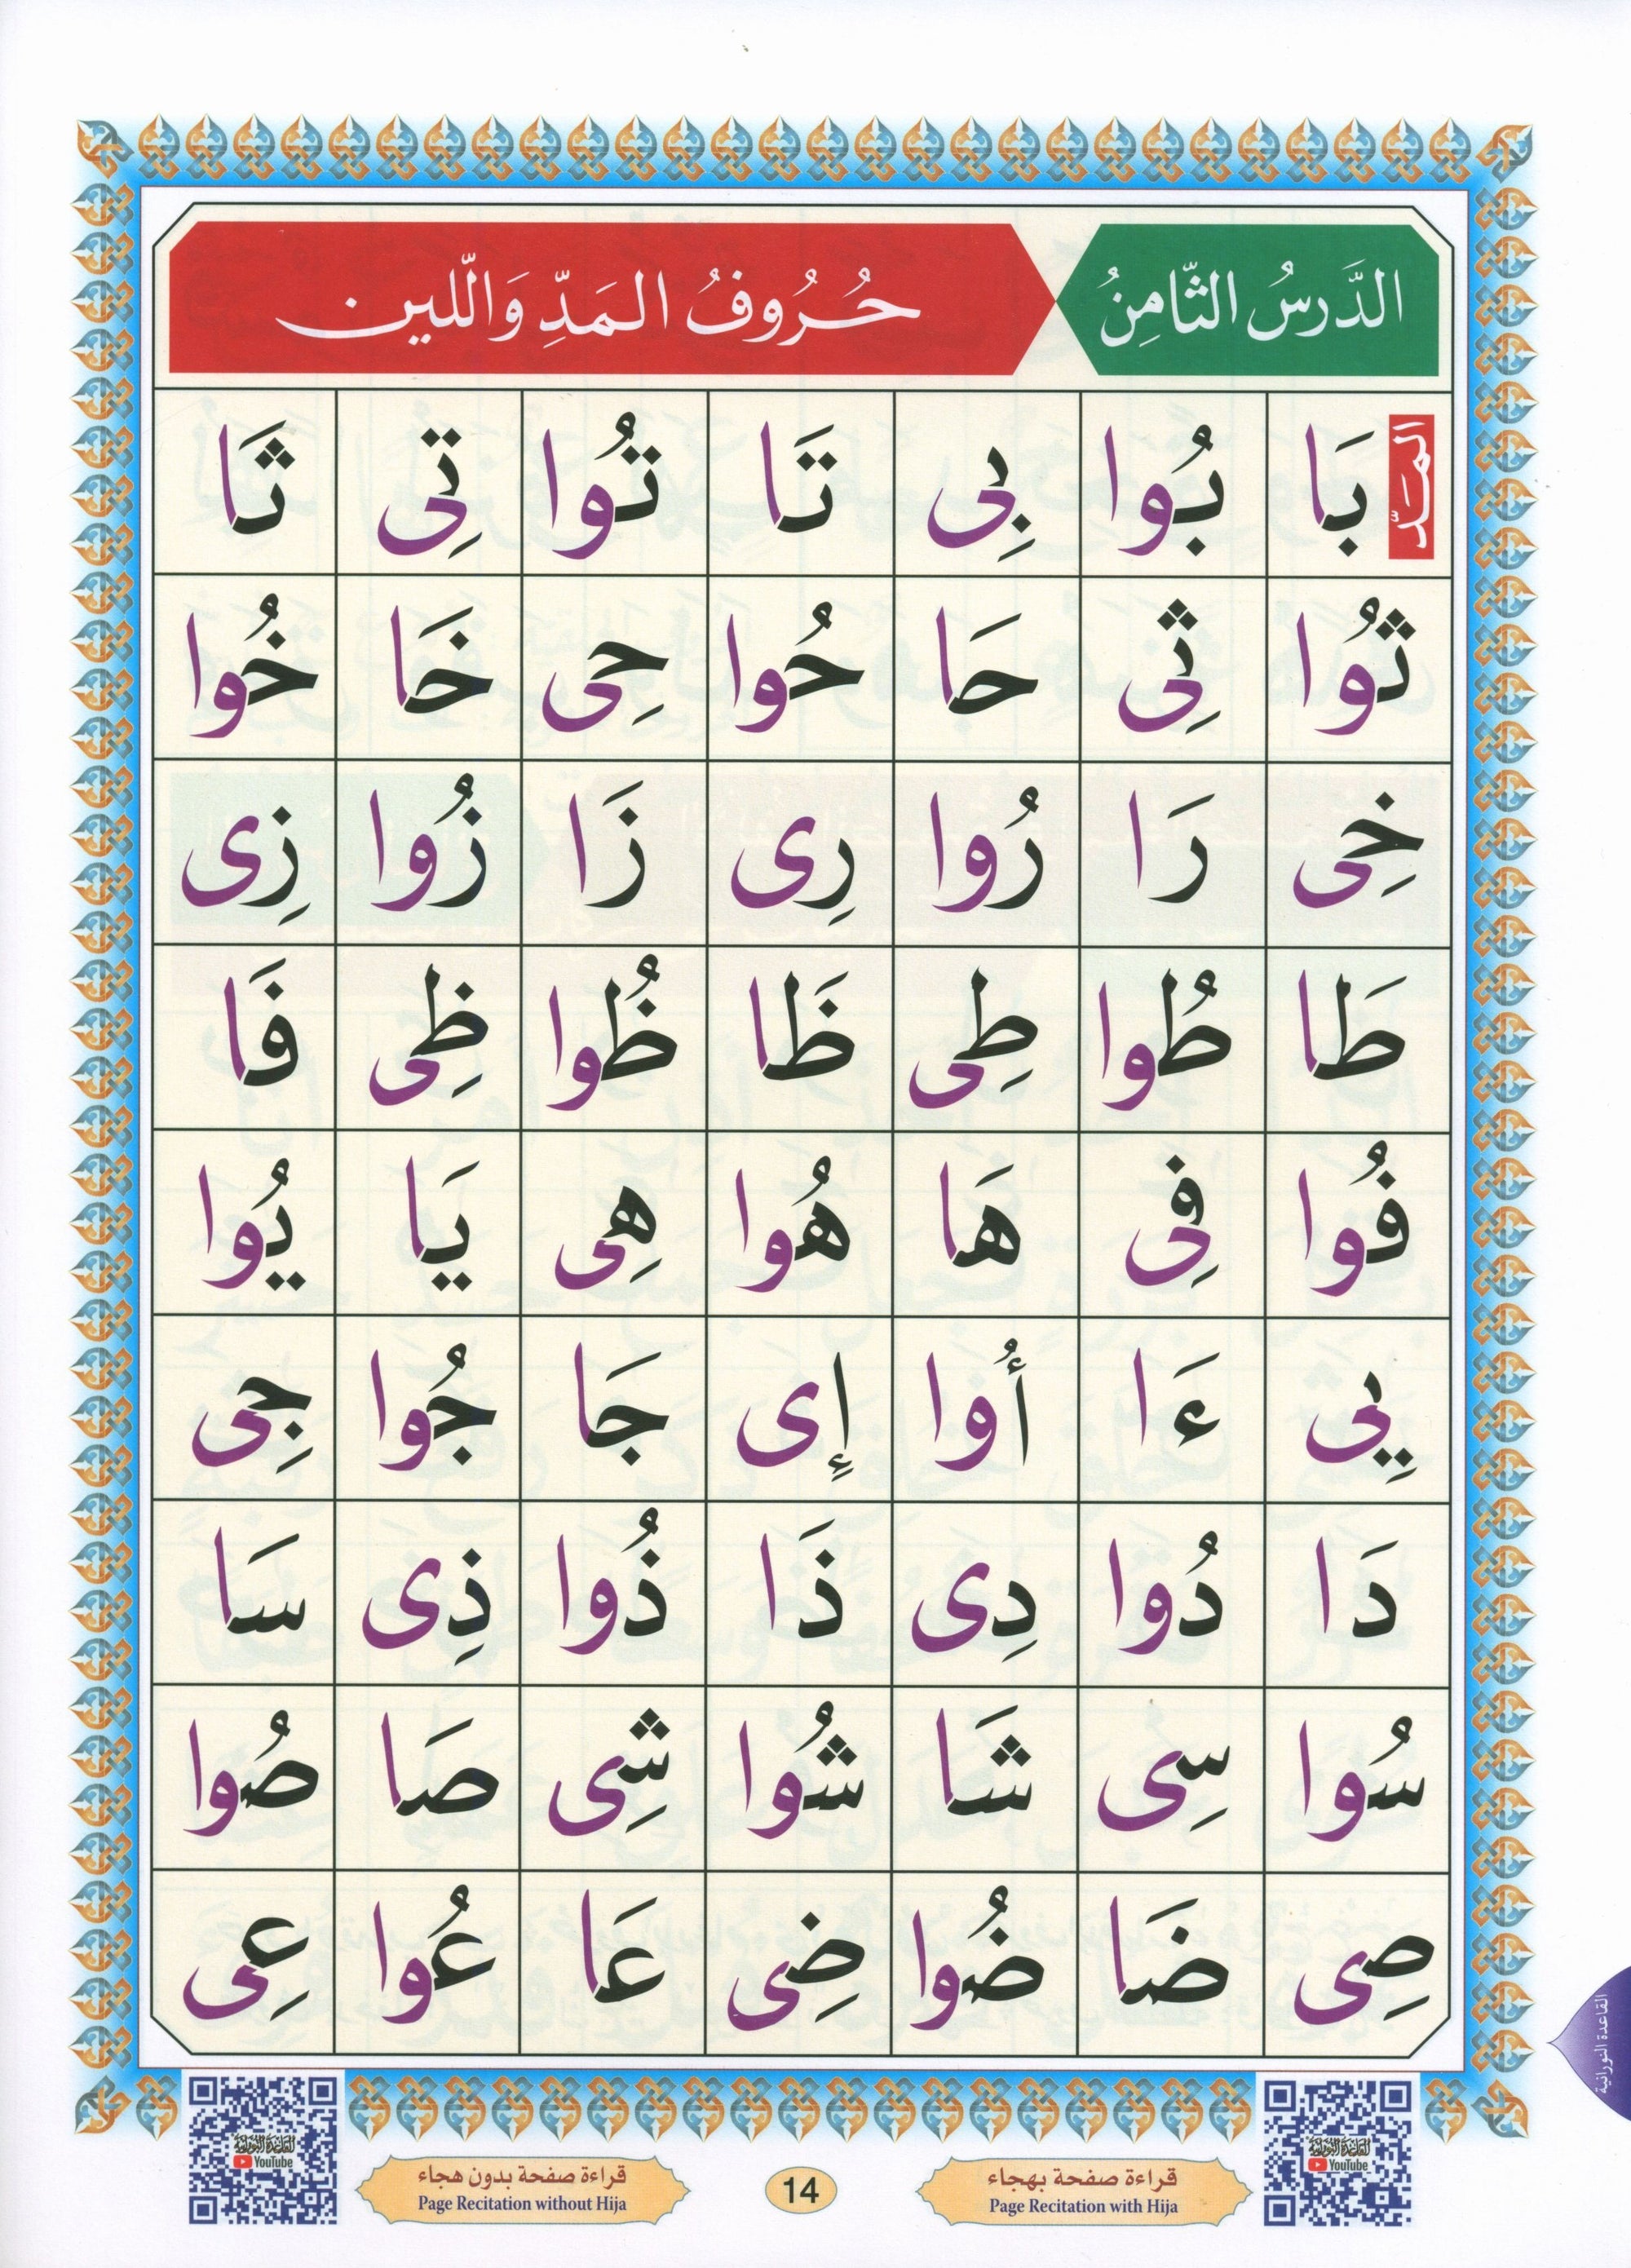 الدَّرسُ الثّامِنُ حُرُوفُ المَدِّ وَاللّين
المَدّ
بَا بُوا بِى تَا تُوا تِى ثَا
ثُوا ثِى حَا حُوا حِى خَا خُوا
خِى رَا رُوا رِى زَا زُوا زِى
طَا طُوا طِى ظَا ظُوا ظِى فَا
فُوا فِى هَا هُوا هِى يَا يُوا
يِى ءَا أُوا إِى جَا جُوا جِى
دَا دُوا دِى ذَا ذُوا ذِى سَا
سُوا سِى شَا شُوا شِى صَا صُوا
صِى ضَا ضُوا ضِى عَا عُوا عِى
القاعدة النورانية
القاعدة النورانية
YouTube
قراءة صفحة بهجاء
Page Recitation with Hija
14
قراءة صفحة بدون هجاء
Page Recitation without Hija
القاعدة النورانية
YouTube